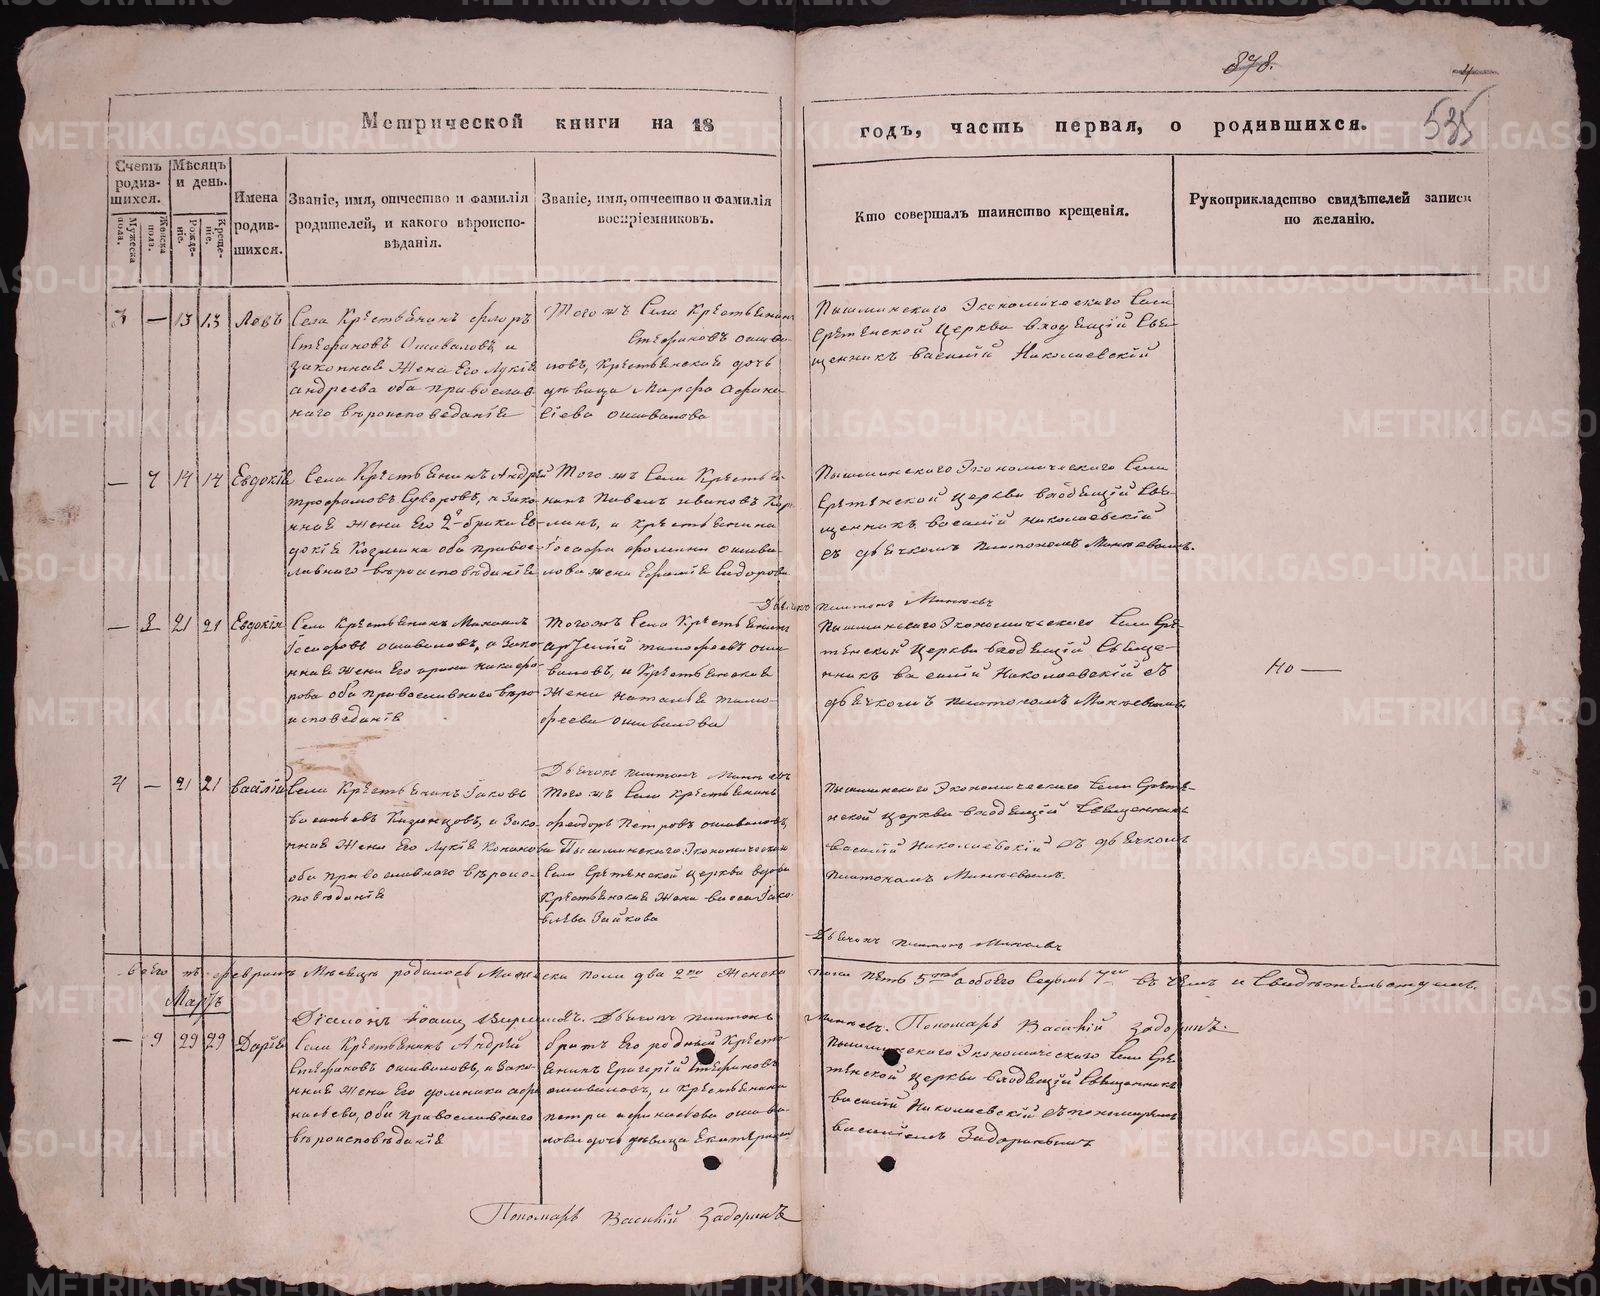 878.
4
535
Метрической книги на 18
годъ, часть первая, о родившихся.
Счетъ родив-
шихся.
Мужеска пола.
Женска пола.
Мѣсяцъ и день.
Рожде-
ніе.
Креще-
ніе.
Имена
родив-
шихся.
Званіе, имя, отчество и фамилія
родителей, и какого вѣроиспо-
вѣданія.
Званіе, имя, отчество и фамилія
воспріемниковъ.
Кто совершалъ таинство крещенія.
Рукоприкладство свидѣтелей записи
по желанію.
3 — 13 13
Села Крестьянинъ Флоръ
Стефановъ Ошиваловъ, и
законная жена Его Лукія
Андреева оба православ
наго вѣроисповеданія
Того жъ Села Крестьянинъ
Стефановъ Ошива
ловъ, Крестьянская дочь
дѣвица Марфа Афана
сіева Ошивалова
Пышминскаго Экономическаго Села
Срѣтенской Церкви Свя
щенникъ Василій Николаевскій
— 7 14 14 Евдокія
Села Крестьянинъ Андрей
Суворовъ, и зако
нная жена Его 2го брака Ев
докія Козмина оба право
славнаго вѣроисповѣданія
Того жъ Села Крестья
нинъ Павелъ Ивановъ
и крестьянина
Іосифа Фомина Ошива
лова жена Сидорова
Пышминскаго Экономическаго Села
Срѣтенской Церкви Свя
щенникъ Василій Николаевскій
съ дьячкомъ Платономъ
Дьячекъ Платонъ
— 8 21 21 Евдокія
Села Крестьянинъ Михаилъ
Іосифовъ Ошиваловъ, и зако
нная жена Его Ирина Никифо
рова оба православнаго вѣро
исповеданія
Тогожъ Села Крестьянинъ
Тимофеевъ Оши
валовъ, и Крестьянская
жена Наталья Тимо
феева Ошивалова
Пышминскаго Экономическаго Села Срѣ
тенской Церкви Свяще
нникъ Василій Николаевскій съ
дьячкомъ Платономъ
Но —
4 — 21 21 Василій
Села Крестьянинъ Іаковъ
Васильевъ Казанцовъ, и зако
нная жена Его Лукія
оба православнаго вѣроис
повѣданія
Дьячекъ Платонъ
Того жъ Села Крестьянинъ
Феодоръ Петровъ Ошиваловъ
Пышминскаго Экономическаго
Села Срѣтенской Церкви вдова
Крестьянская жена Васса Іако
влева Зайкова
Пышминскаго Экономическаго Села Срѣте
нской Церкви Священникъ
Василій Николаевскій съ дьячкомъ
Платономъ
Дьячекъ Платонъ
Всего въ Февралѣ Мѣсяцѣ родилось Мужеска пола два 2 Женска
пола пять 5 обоего Седмь 7 въ чемъ и Свидѣтельствуемъ.
Діаконъ Іоаннъ
Дьячекъ Платонъ
Пономарь Василій Задоринъ.
Мартъ
— 9 29 29 Дарія
Села Крестьянинъ Андрей
Стефановъ Ошиваловъ, и зако
нная жена Его Домника Афа
насьева, оба Православнаго
вѣроисповѣданія
братъ Его родный Кресть
янинъ Григорій Стефановъ
Ошиваловъ, и крестьянина
Петра Афанасьева Ошива
лова дочь дѣвица Екатерина
Пышминскаго Экономическаго Села Срѣ
тенской Церкви Священникъ
Василій Николаевскій съ пономаремъ
Василіемъ Задоринымъ
Пономарь Василій Задоринъ
METRIKI.GASO-URAL.RU